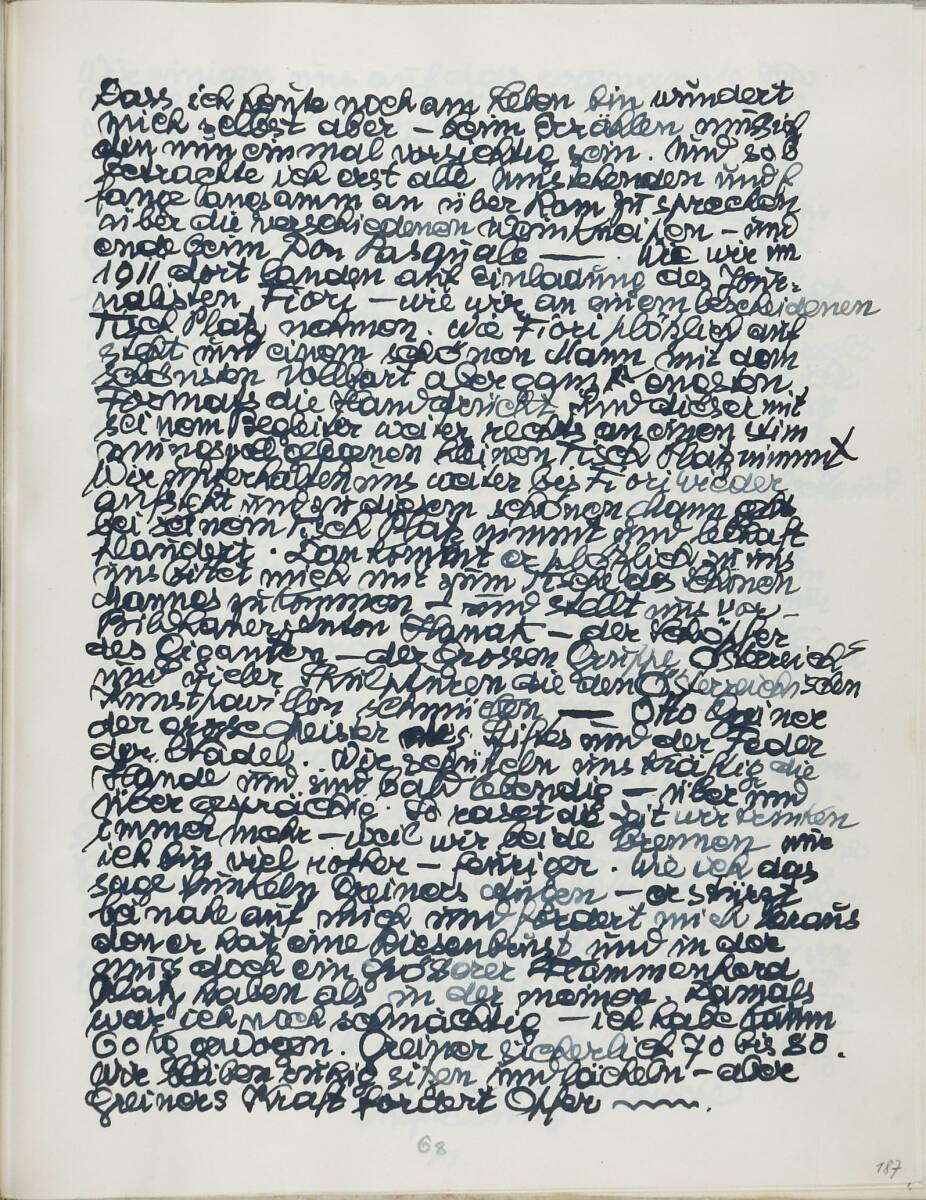 Dass ich heute noch am Leben bin wundert
mich selbst aber – beim Erzählen muss ich
den nun einmal vorsichtig sein. Und so b
etrachte ich erst alle umstehenden und
fange langsamm an über Rom zu sprechen
über die verschiedenen Weinkneipen – und
ende beim Don Pasquale — . Wie wir im
1911 dort landen auf Einladung des Jour-
nalisten Fiori – wie wir an einem bescheidenen
Tisch Platz nahmen. Wie Fiori plötzlich auf
steht und einem schönen Mann mit dem
schönsten Vollbart aber ganz
Formats die Hand drückt. Und dieser mit
seinem Begleiter weiter rechts an einen stim
mungsvoll gelegenen kleinen Tisch Platz nimmt
Wir unterhalten uns weiter bis Fiori wieder
aufsteht und zu diesem schönen Mann
bei seinem Tisch Platz nimmt und lebhaft
plaudert. Dan kommt er plötzlich zu uns
uns bittet mich mit zum Tische des schönen
Mannes zu kommen – und stellt uns vor –
Bildhauer Anton Hanak – der Schöpfer
des Giganten – der Grossen Grippe Österreichs
und vieler Skulpturen die den Österreichischen
Kunstpavillon schmücken — Otto Greiner
der grosse Meister des Stiftes und der Feder
der Nadel. Wir schütteln uns kräftig die
Hände und sind bald lebendig – über und
über gesprächig. So raset die Zeit wir trinken
immer mehr – weil wir beide Brennen nur
ich bin viel rother – feuriger. Wie ich das
sage funkeln Greiners Augen – er stürzt
beinahe auf mich und fordert mich heraus
den er hat eine Riesenbrust und in der
muss doch ein grösserer Flammenherd
Platz haben als in der meinen. Damals
war ich noch schmächtig – ich habe kaum
60 Ko gewogen. Greiner sicherlich 70 bis 80.
Wir bleiben ruhig sitzen und lächeln – aber
Greiners Kraft fordert Opfer
68
187